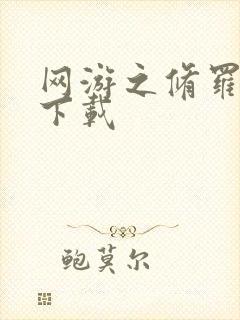 网游之脩罗
下载
鲍莫尔